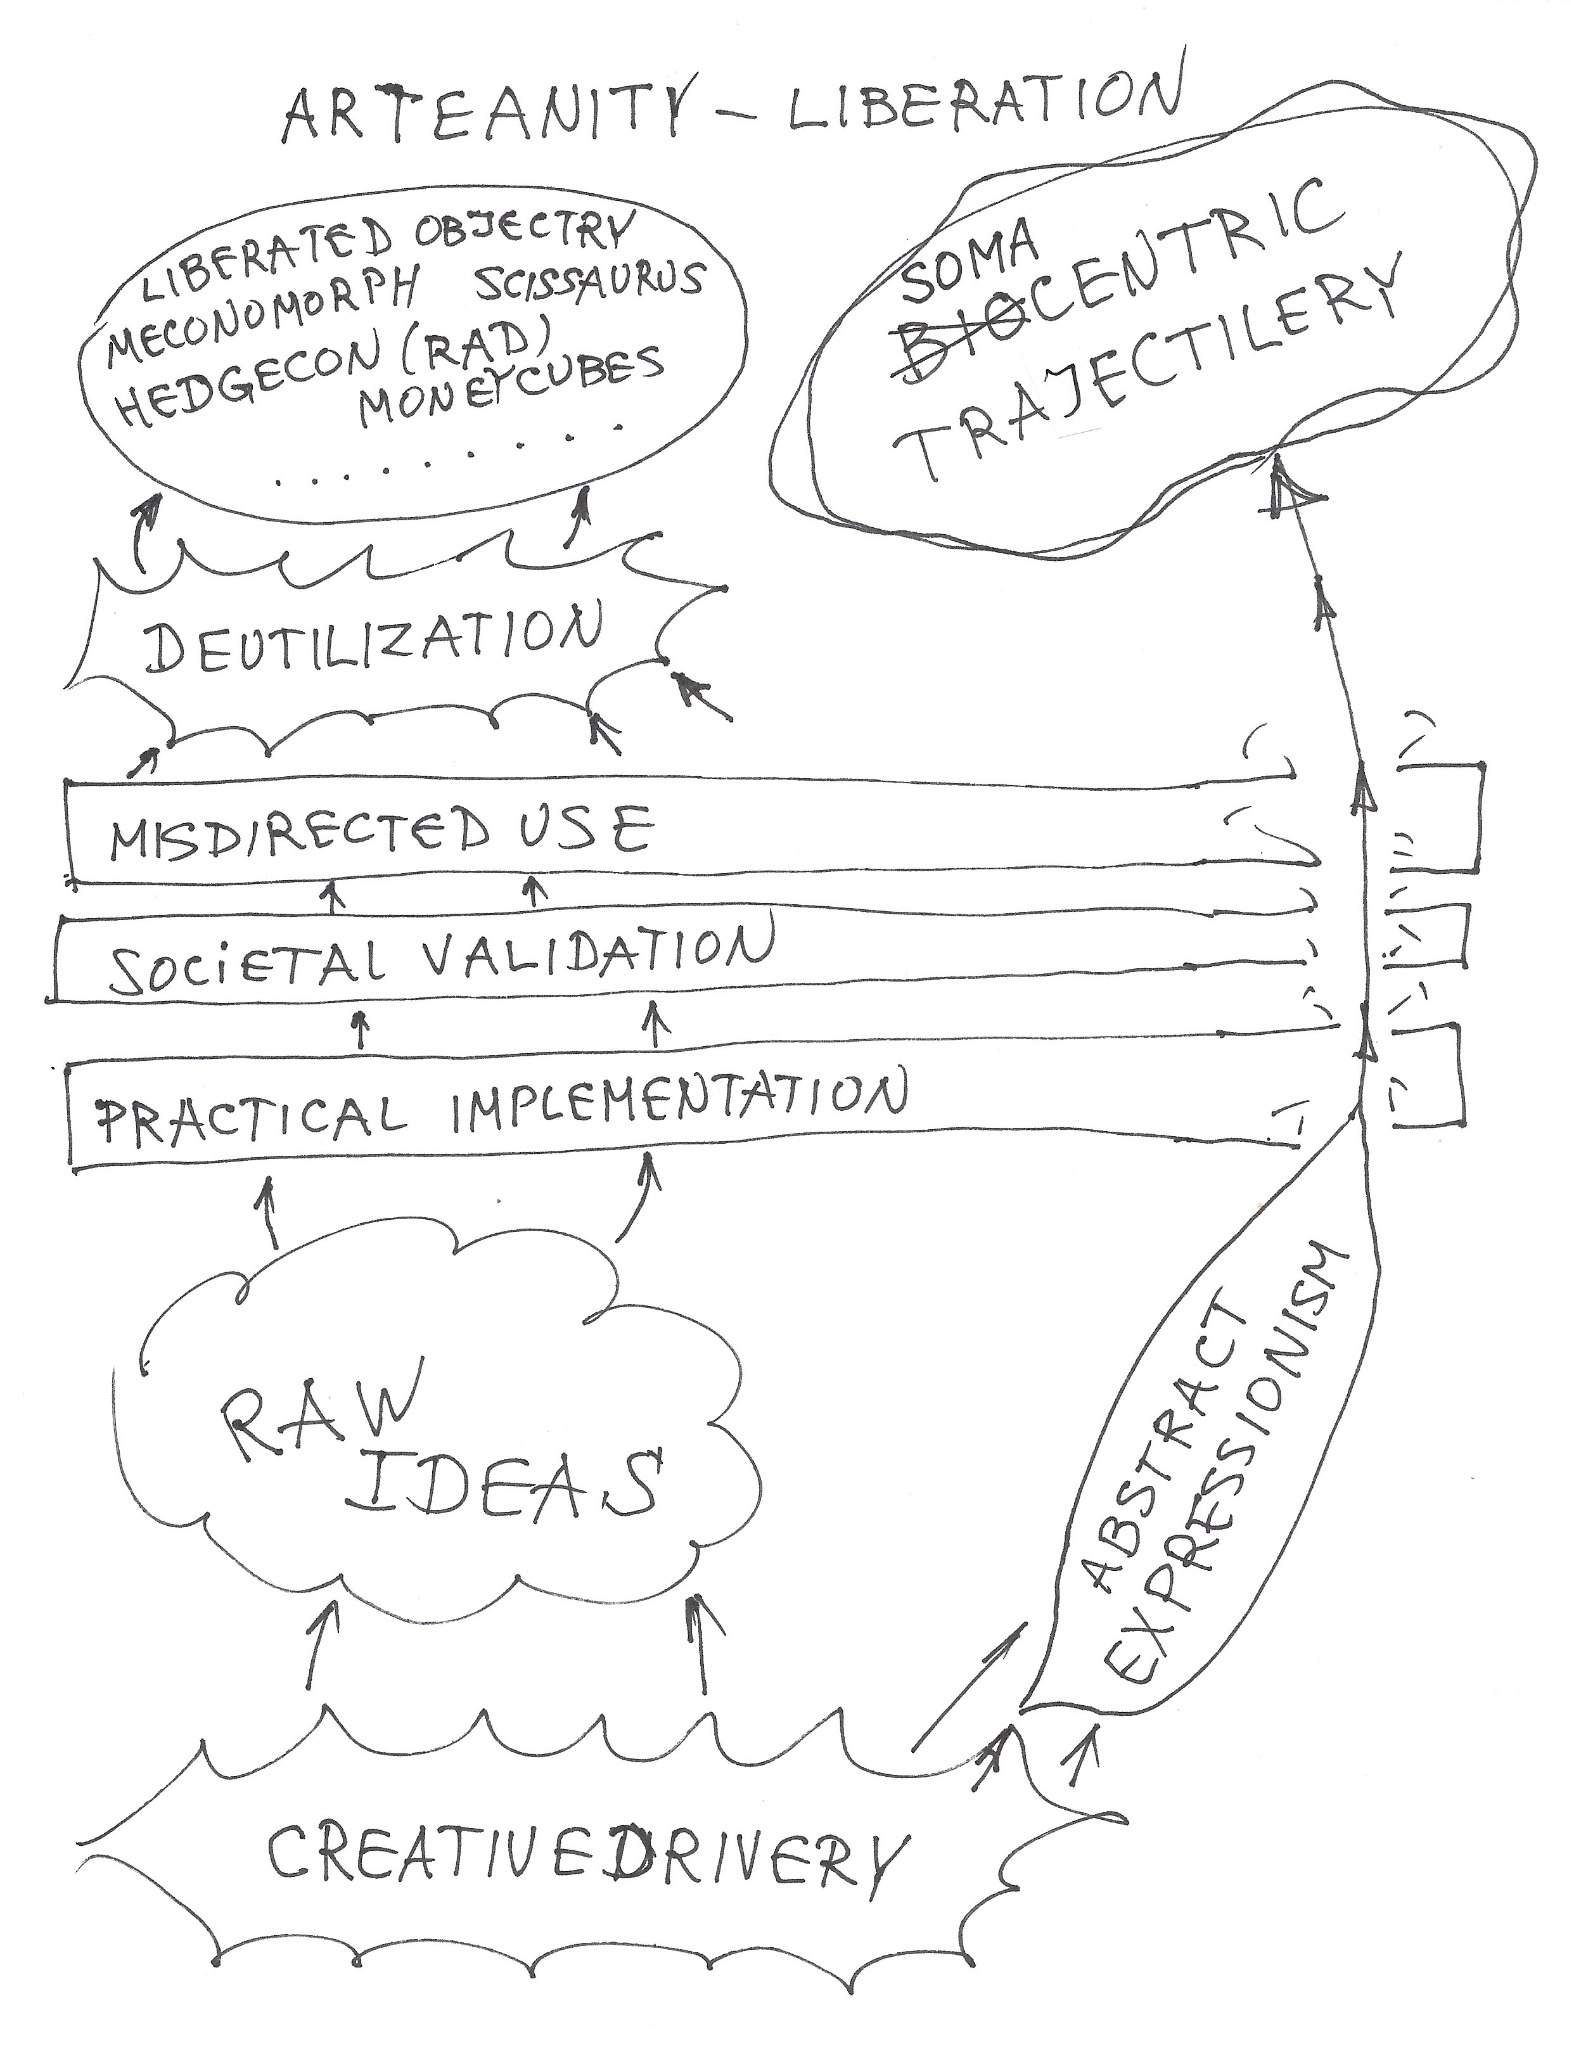 ARTEANITY – LIBERATION
LIBERATED OBJECTRY
MECONOMORPH SCISSAURUS
HEDGECON (RAD)
MONEYCUBES
. . . . . . . . .
SOMA
BIOCENTRIC
TRAJECTILERY
DEUTILIZATION
MISDIRECTED USE
SOCiETAL VALIDATION
PRACTICAL IMPLEMENTATION
RAW
IDEAS
ABSTRACT
EXPRESSIONISM
CREATIVEDRIVERY